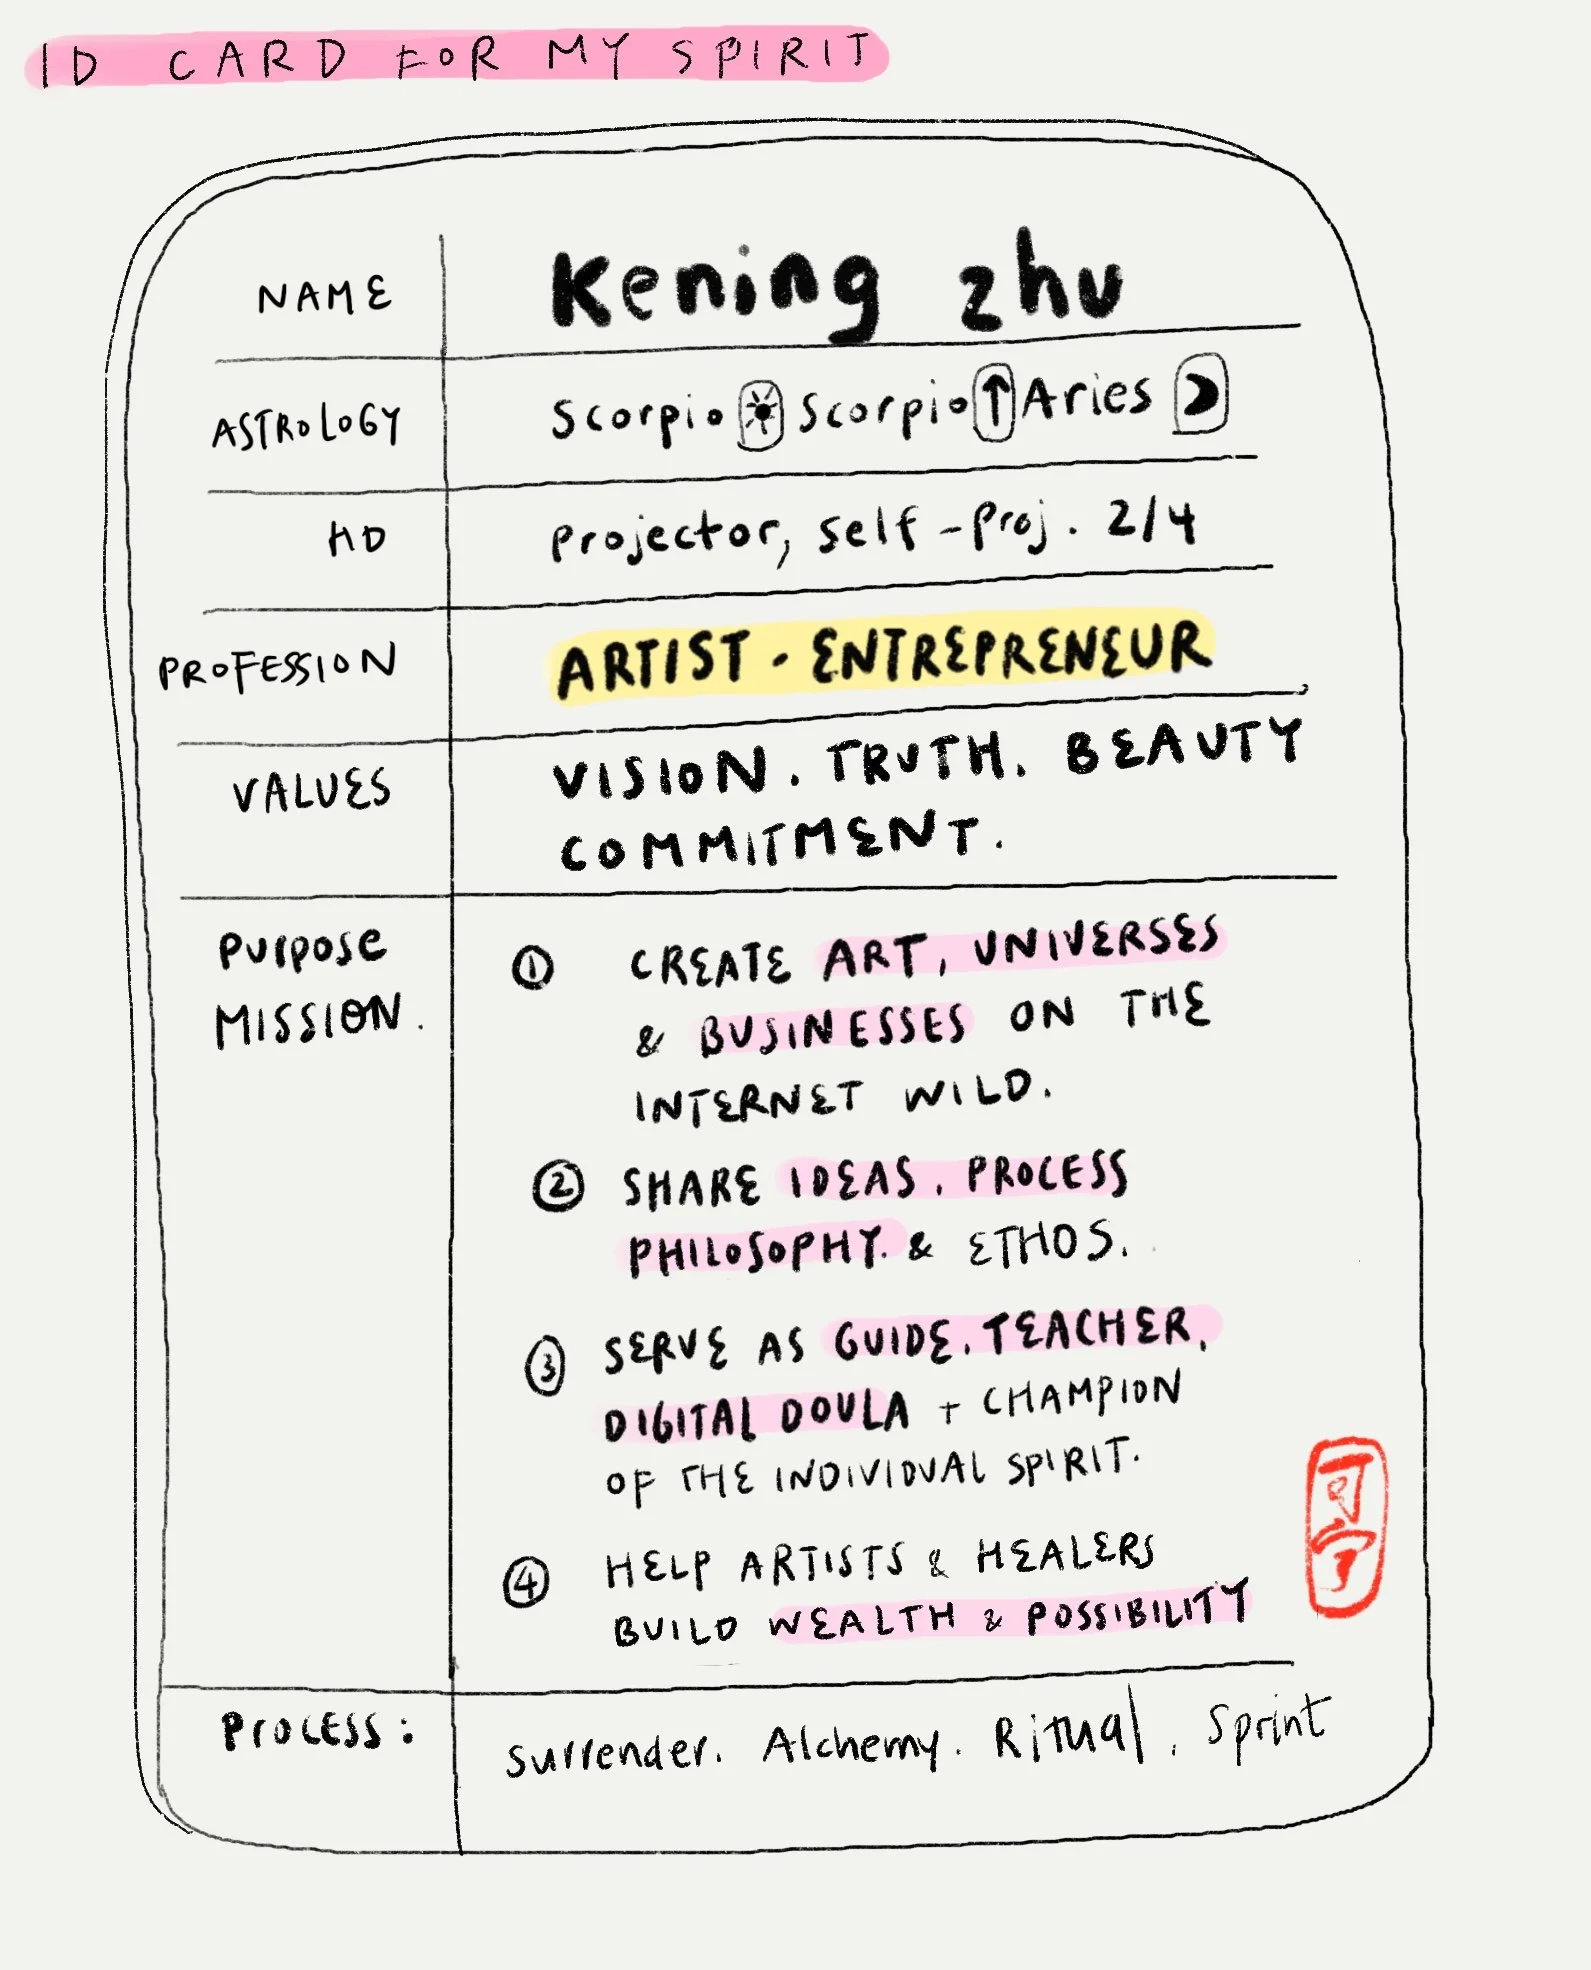 ID CARD FOR MY SPIRIT
NAME Kening Zhu
ASTROLOGY Scorpio ☀ Scorpio ↑ Aries ☽
HD Projector, Self-Proj. 2/4
PROFESSION ARTIST · ENTREPRENEUR
VALUES VISION. TRUTH. BEAUTY
COMMITMENT.
PURPOSE ① CREATE ART, UNIVERSES
MISSION. & BUSINESSES ON THE
INTERNET WILD.
② SHARE IDEAS. PROCESS
PHILOSOPHY. & ETHOS.
③ SERVE AS GUIDE. TEACHER.
DIGITAL DOULA + CHAMPION
OF THE INDIVIDUAL SPIRIT.
④ HELP ARTISTS & HEALERS
BUILD WEALTH & POSSIBILITY
可
宁
PROCESS: Surrender. Alchemy. Ritual. Sprint